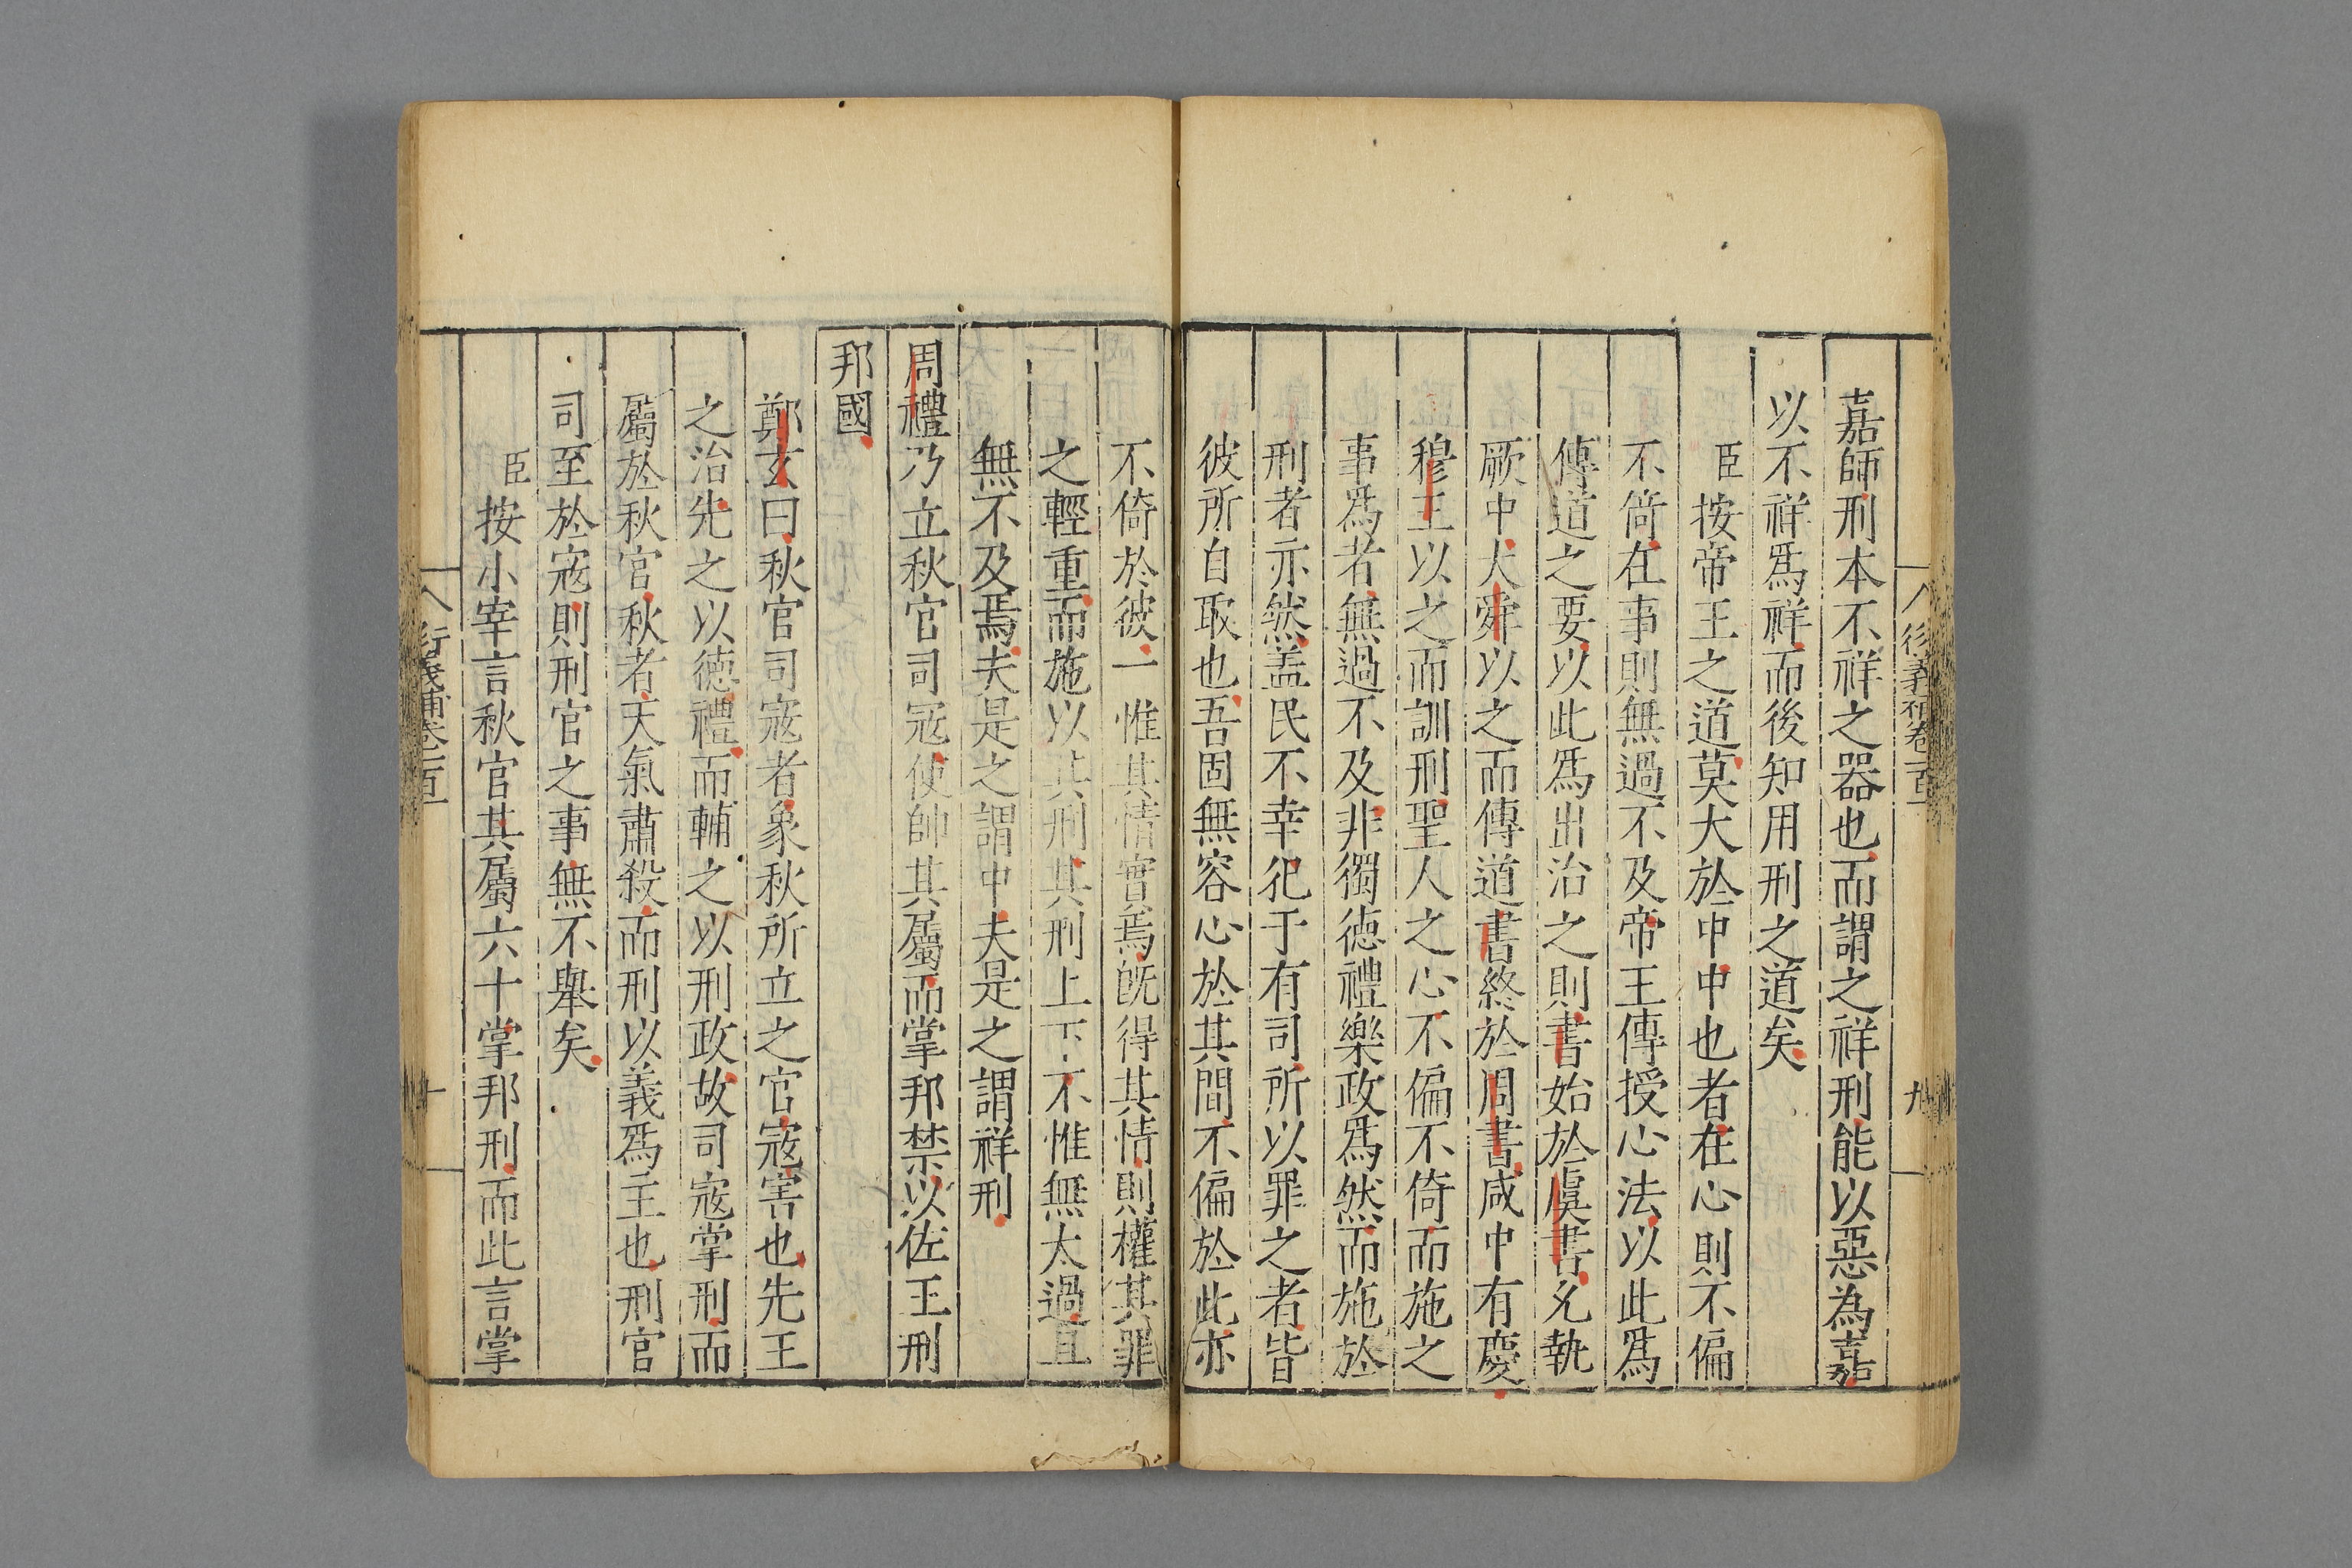 衍義補卷一百一
九
嘉師刑本不祥之器也而謂之祥刑能以惡為嘉
以不祥爲祥而後知用刑之道矣
臣按帝王之道莫大於中中也者在心則不偏
不倚在事則無過不及帝王傳授心法以此爲
傳道之要以此爲出治之則書始於虞書允執
厥中大舜以之而傳道書終於周書咸中有慶
穆王以之而訓刑聖人之心不偏不倚而施之
事爲者無過不及非獨德禮樂政爲然而施於
刑者亦然盖民不幸犯于有司所以罪之者皆
彼所自取也吾固無容心於其間不偏於此亦
不倚於彼一惟其情實焉旣得其情則權其罪
之輕重而施以其刑其刑上下不惟無太過且
無不及焉夫是之謂中夫是之謂祥刑
周禮乃立秋官司寇使帥其屬而掌邦禁以佐王刑
邦國
鄭玄曰秋官司寇者象秋所立之官寇害也先王
之治先之以德禮而輔之以刑政故司寇掌刑而
屬於秋官秋者天氣肅殺而刑以義爲主也刑官
司至於寇則刑官之事無不舉矣
臣按小宰言秋官其屬六十掌邦刑而此言掌
衍義補卷一百一
十